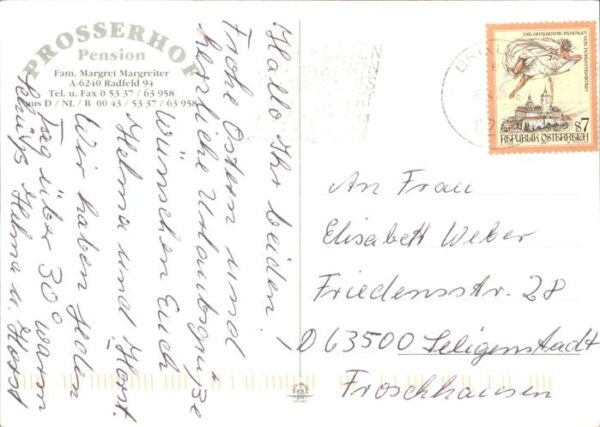 PROSSERHOF
Pension
Fam. Margret Margreiter
A-6240 Radfeld 94
Tel. u. Fax 0 53 37 / 63 958
aus D / NL / B 00 43 / 53 37 / 63 958
Hallo Ihr beiden!
Frohe Ostern und
herzliche Urlaubsgrüße
wünschen Euch
Helma und Horst.
Wir haben jeden
Tag über 30° warm
Tschüß Helma u. Horst
S7
REPUBLIK ÖSTERREICH
An Frau
Elisabett Weber
Friedensstr. 28
D 63500 Seligenstadt
Froschhausen